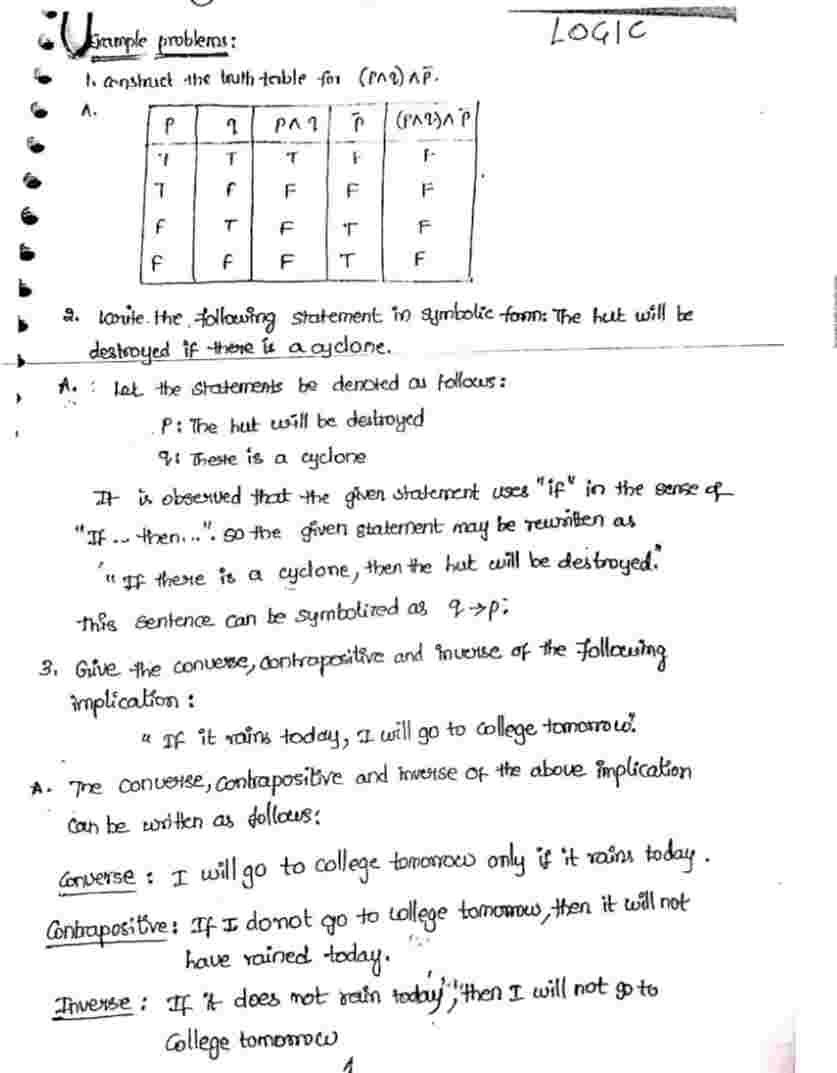 LOGIC
Example problems:
1. Construct the truth table for (P∧q)∧p̄.
A.
P q P∧q p̄ (P∧q)∧p̄
T T T F F
T F F F F
F T F T F
F F F T F
2. Write the following statement in symbolic form: The hut will be
destroyed if there is a cyclone.
A. : Let the statements be denoted as follows:
P: The hut will be destroyed
q: There is a cyclone
It is observed that the given statement uses "if" in the sense of
"If ... then...". So the given statement may be rewritten as
"If there is a cyclone, then the hut will be destroyed."
This sentence can be symbolized as q→p.
3. Give the converse, contrapositive and inverse of the following
implication :
" If it rains today, I will go to college tomorrow".
A. The converse, contrapositive and inverse of the above implication
can be written as follows:
Converse : I will go to college tomorrow only if it rains today.
Contrapositive : If I donot go to college tomorrow, then it will not
have rained today.
Inverse : If it does not rain today, then I will not go to
College tomorrow
1